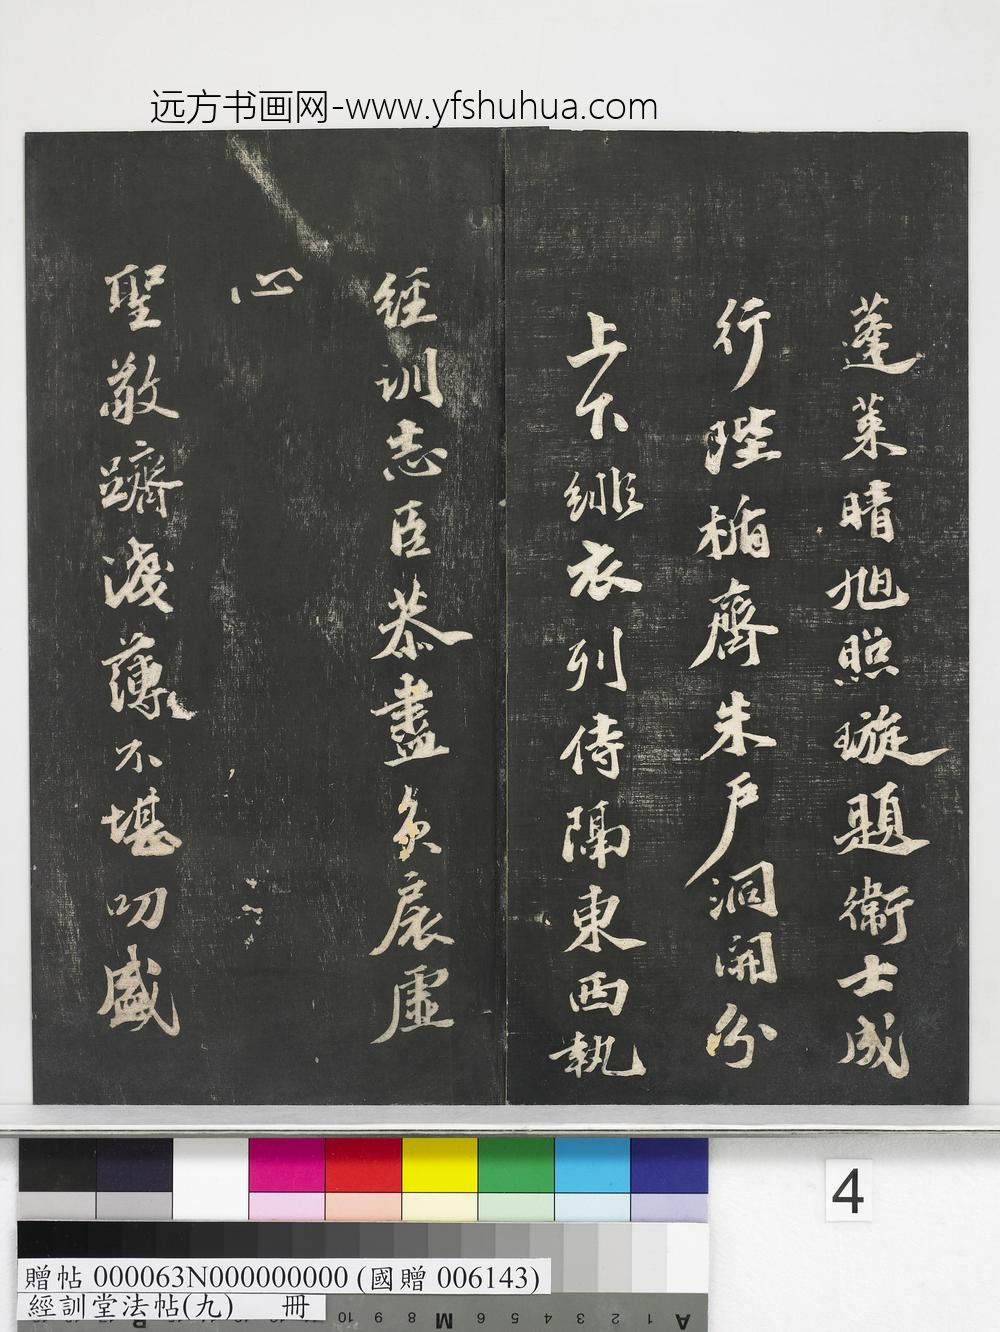 远方书画网-www.yfshuhua.com
蓬萊晴旭照璇題衛士成
行陛楯齊朱戶洞開分
上下緋衣列侍隔東西執
經訓志臣恭盡負扆虛
心
聖敬躋淺薄不堪叨盛
4
贈帖 000063N000000000 (國贈 006143)
經訓堂法帖(九) 冊
10 9 8 M 7 6 5 4 3 2 1 A